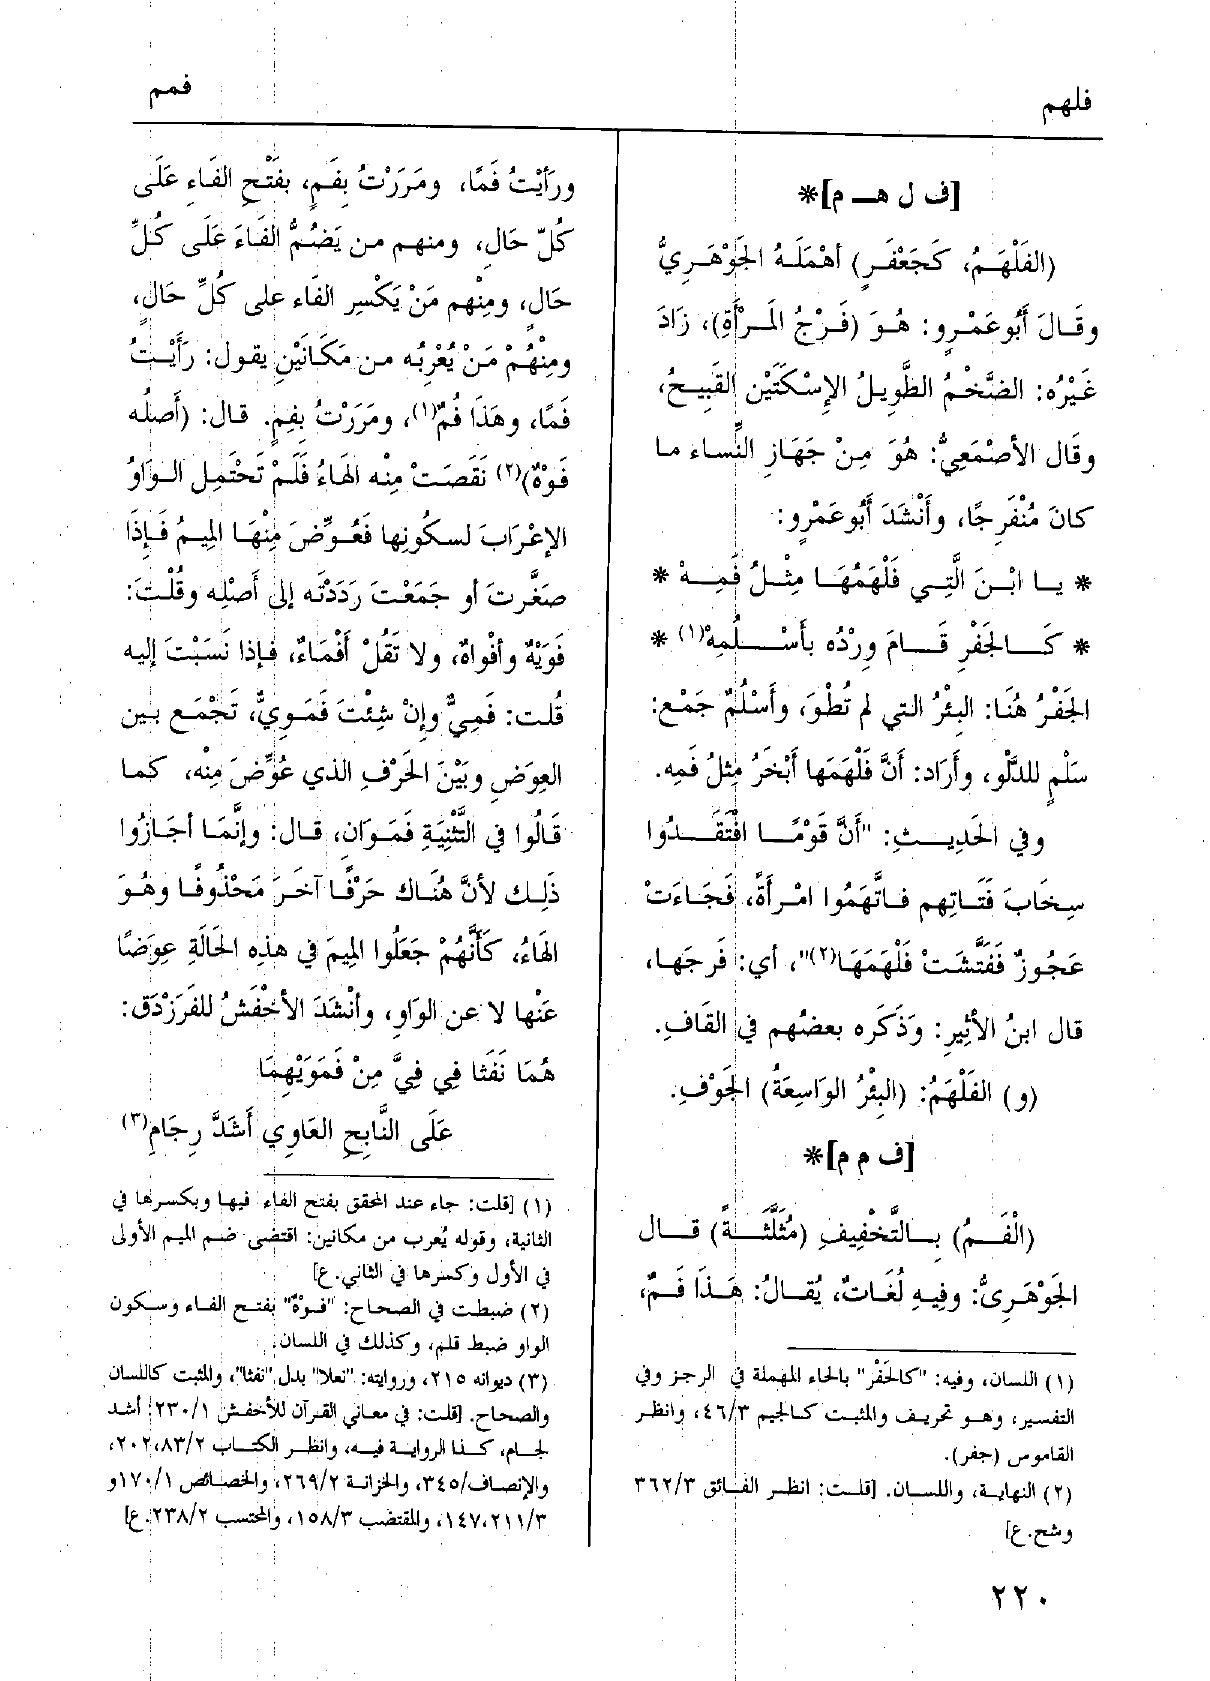 فلهم
فمم
[ف ل هـ م]*
(الفَلْهَمُ، كَجَعْفَرٍ) أهْمَلَهُ الجَوْهَرِيُّ
وقَالَ أَبُوعَمْرٍو: هُوَ (فَرْجُ المَرْأَةِ)، زَادَ
غَيْرُه: الضَّخْمُ الطَّوِيلُ الإِسْكَتَيْنِ القَبِيحُ،
وقَال الأصْمَعِيُّ: هُوَ مِنْ جَهَازِ النِّساء ما
كانَ مُنْفَرِجًا، وأَنْشَدَ أَبُوعَمْرٍو:
* يا ابْنَ الَّتِي فَلْهَمُهَا مِثْلُ فَمِهْ *
* كَالجَفْرِ قَامَ وِرْدُه بأَسْلُمِهْ(١) *
الجَفْرُ هُنَا: البِئْرُ التي لم تُطْوَ، وأَسْلُمٌ جَمْع:
سَلْمٍ للدَّلْوِ، وأَرَاد: أَنَّ فَلْهَمَها أَبْخَرُ مِثلُ فَمِه.
وفي الحَدِيثِ: "أَنَّ قَوْمًا افْتَقَدُوا
سِخَابَ فَتَاتِهِم فاتَّهَمُوا امْرأَةً، فَجَاءَتْ
عَجُوزٌ فَفَتَّشَتْ فَلْهَمَهَا(٢)"، أي: فَرجَها،
قال ابنُ الأَثِيرِ: وَذَكَره بعضُهم في القَافِ.
(و) الفَلْهَمُ: (البِئْرُ الوَاسِعَةُ) الجَوْفِ.
[ف م م]*
(الْفَمُ) بِالتَّخْفِيفِ (مُثَلَّثَةً) قَال
الجَوْهَرِىُّ: وفِيهِ لُغَاتٌ، يُقالُ: هَذَا فَمٌ،
(١) اللسان، وفيه: "كالحَفْر" بالحاء المهملة في الرجز وفي
التفسير، وهو تحريف والمثبت كالجيم ٤٦/٣، وانظر
القاموس (جفر).
(٢) النهاية، واللسان. [قلت: انظر الفائق ٣٦٢/٣
وشح.ع]
ورَأَيْتُ فَمًا، ومَرَرْتُ بِفَمٍ، بفَتْحِ الفَاءِ عَلَى
كُلّ حَالٍ، ومنهم من يَضُمُّ الفَاءَ عَلَى كُلِّ
حَالٍ، ومِنْهم مَنْ يَكْسِر الفَاء على كُلِّ حَالٍ،
ومِنْهُمْ مَنْ يُعْرِبُه من مَكَانَيْنِ يقول: رَأَيْتُ
فَمًا، وهَذَا فُمٌ(١)، ومَرَرْتُ بِفِمٍ. قال: (أَصلُه
فَوْهٌ)(٢) نَقَصَتْ مِنْه الهَاءُ فَلَمْ تَحْتَمِل الوَاوُ
الإعْرَابَ لسكُونِها فَعُوِّضَ مِنْهَا المِيمُ فَإذَا
صَغَّرتَ أو جَمَعْتَ رَدَدْتَه إلى أَصْلِه وقُلْتَ:
فُوَيْهٌ وأفْوَاهٌ، ولا تَقُلْ أَفْمَاءٌ، فإذا نَسَبْتَ إليه
قُلت: فَمِيٌّ وإنْ شِئْتَ فَمَوِيٌّ، تَجْمَع بين
العِوَضِ وبَيْنَ الحَرْفِ الذي عُوِّضَ مِنْه، كما
قَالُوا في التَّثْنِيَةِ فَمَوَان، قال: وإنَّمَا أجَازُوا
ذَلِك لأنَّ هُنَاك حَرْفًا آخَرَ مَحْذُوفًا وهُوَ
الهَاءُ، كَأَنَّهُمْ جَعَلُوا المِيمَ في هذِهِ الحَالَةِ عِوَضًا
عَنْها لا عن الوَاوِ، وأنْشَدَ الأخْفَشُ للفَرَزْدَقِ:
هُمَا نَفَثا فِي فِيَّ مِنْ فَمَوَيْهِمَا
عَلَى النَّابِحِ العَاوِي أَشَدَّ رِجَامِ(٣)
(١) [قلت: جاء عند المحقق بفتح الفاء فيها وبكسرها في
الثانية، وقوله يُعرب من مكانين: اقتضى ضم الميم الأولى
في الأول وكسرها في الثاني.ع]
(٢) ضبطت في الصحاح: "فَوْهٌ" بفتح الفاء وسكون
الواو ضبط قلم، وكذلك في اللسان.
(٣) ديوانه ٢١٥، وروايته: "تفلا" بدل "نفثا"، والمثبت كاللسان
والصحاح. [قلت: في معاني القرآن للأخفش ٢٣٠/١ أشد
لجام، كذا الرواية فيه، وانظر الكتاب ٢٠٢،٨٣/٢،
والإنصاف/٣٤٥، والخزانة ٢٦٩/٢، والخصائص ١٧٠/١و
١٤٧،٢١١/٣، والمقتضب ١٥٨/٣، والمحتسب ٢٣٨/٢.ع]
٢٢٠